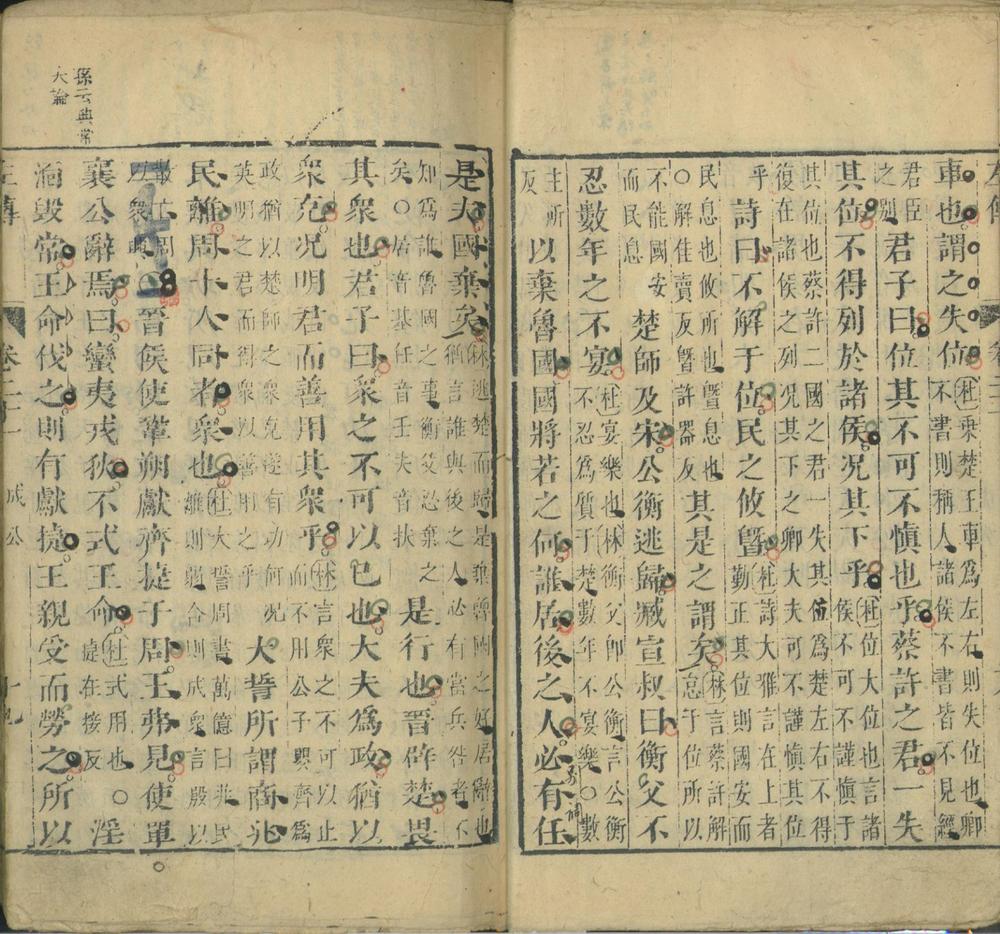 車也謂之失位杜乘楚王車為左右則失位也卿
不書則稱人諸侯不書皆不見經
君臣
之別
君子曰位其不可不慎也乎蔡許之君一失
其位不得列於諸侯况其下乎杜位大位也言諸
侯不可不謹慎于
其位也蔡許二國之君一失其位為楚左右不得
復在諸侯之列况其下之卿大夫可不謹慎其位
乎詩曰不解于位民之攸曁杜詩大雅言在上者
勤正其位則國安而
民息也攸所也曁息也
○解佳賣反曁許器反
其是之謂矣林言蔡許解
怠于位所以
不能國安
而民息
楚師及宋公衡逃歸臧宣叔曰衡父不
忍數年之不宴杜宴樂也林衡父即公衡言公衡
不忍為質于楚數年不宴樂○數
主所
反
以棄魯國國將若之何誰居後之人必有任
是夫國棄矣林逃楚而歸是棄魯國之好居辭也
猶言誰與後之人必有當兵咎者不
知為誰魯國之事衡父忍棄之
矣○居音基任音壬夫音扶
是行也晉辟楚畏
其衆也君子曰衆之不可以已也大夫為政猶以
衆克况明君而善用其衆乎林言衆之不可以止
而不用公子嬰齊為
政猶以楚師之衆克遂有功何况
英明之君而得衆以善用之乎
大誓所謂商兆
民離周十人同者衆也杜大誓周書萬億曰兆民
離則弱合則成衆言殷以
散亡周
以衆興
晉侯使鞏朔獻齊捷于周王弗見使單
襄公辭焉曰蠻夷戎狄不式王命杜式用也
在接反
○淫
湎毀常王命伐之則有獻捷王親受而勞之所以
左傳 卷二十一 成公 十九
孫云典常
大論